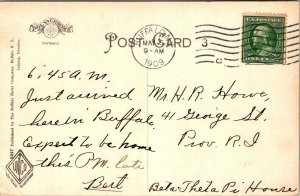 POST CARD 3
Germany.
BUFFALO, N.Y.
MAY
9-AM
1909
U.S. POSTAGE
ONE CENT
6.45 A.M.
Just arrived
here in Buffalo
Expect to be home
this P.M. late
Bert
Mr. H. R. Howe,
41 George St.
Prov. R.I
Beta Theta Pi House
Published by The Buffalo News Company, Buffalo, N.Y.
Leipzig, Dresden.